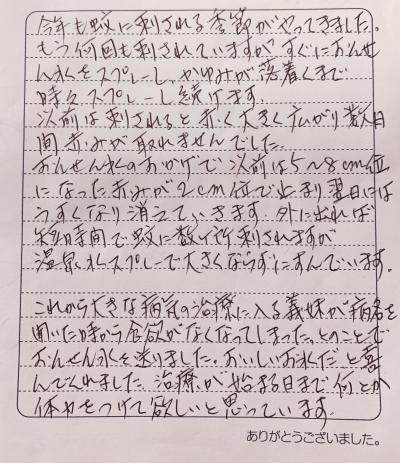 今年も蚊に刺される季節がやってきました。
もう何回も刺されていますが、すぐにおんせ
ん水をスプレーし、かゆみが落着くまで
時々スプレーし続けます。
以前は刺されると赤く大きく広がり数日
間赤みが取れませんでした。
おんせん水のおかげで以前は5~8cm位
になった赤みが2cm位で止まり翌日には
うすくなり消えていきます。外に出れば
短時間で蚊に数ヶ所刺されますが
温泉水スプレーで大きくならずにすんでいます。
これから大きな病気の治療に入る義妹が病名を
聞いた時から食欲がなくなってしまった、とのことで
おんせん水を送りました。おいしいお水だと喜
んでくれました。治療が始まる日まで何とか
体力をつけて欲しいと思っています。
ありがとうございました。